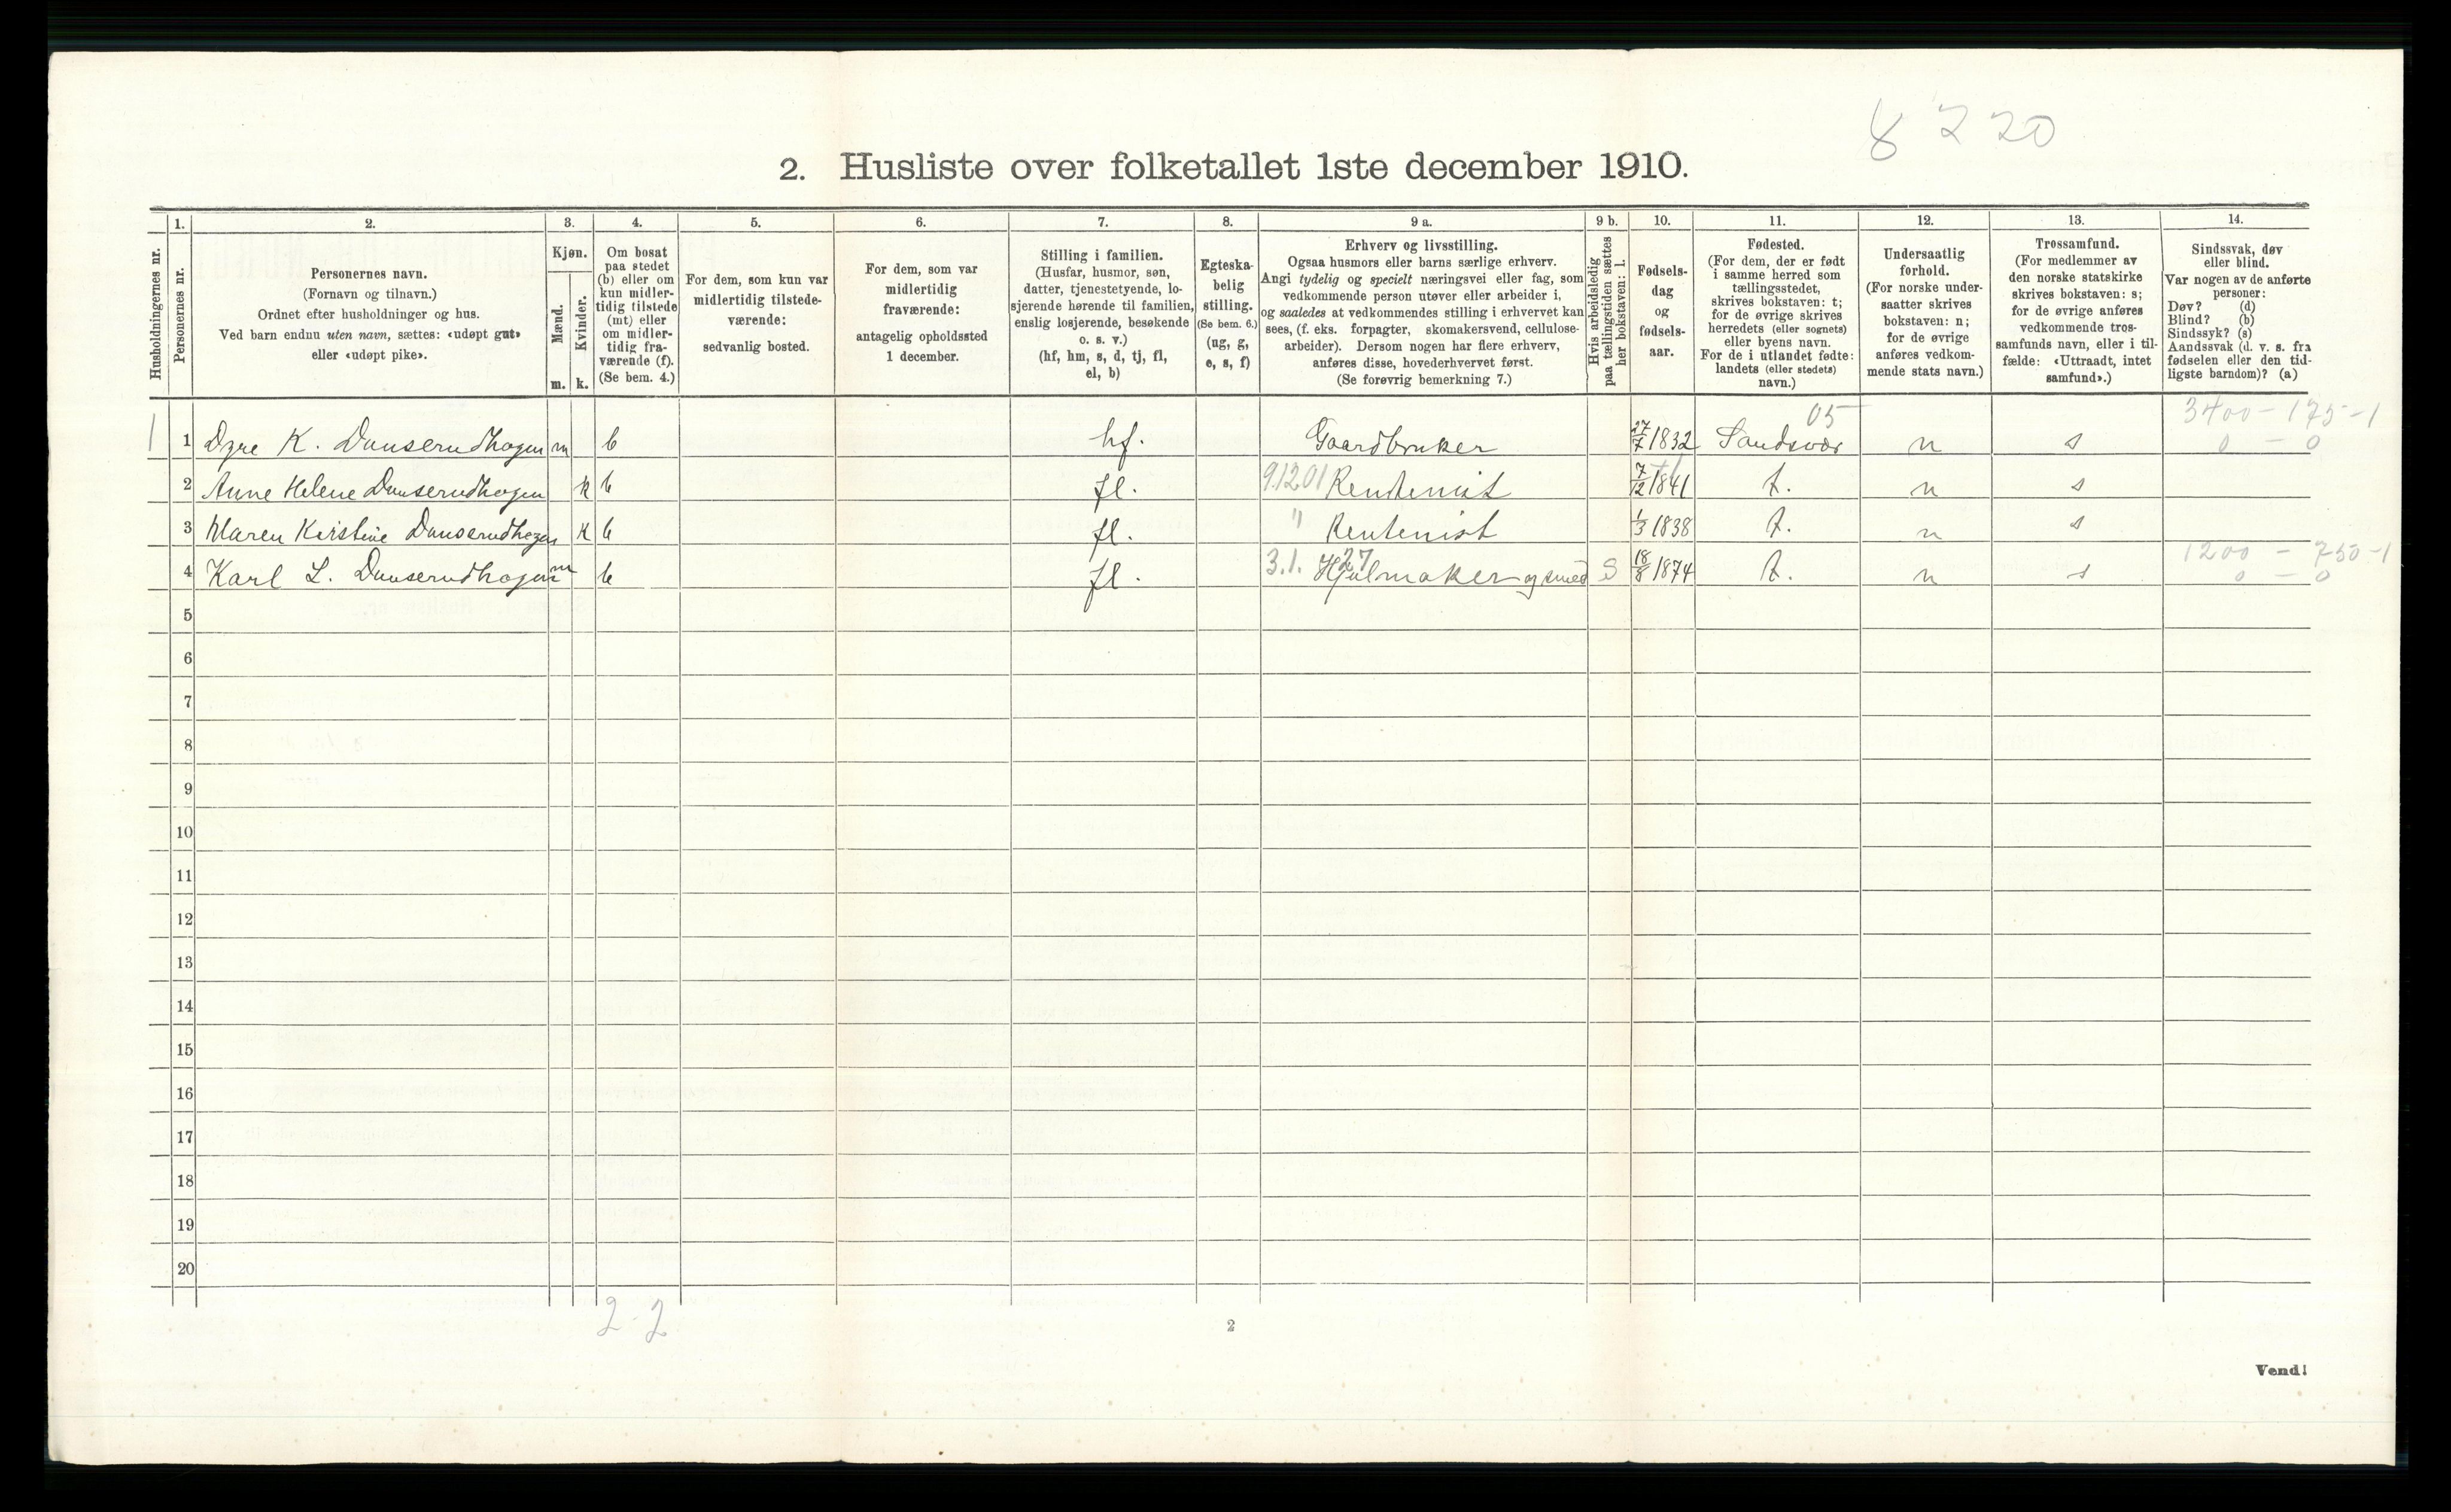 8 2 20
2. Husliste over folketallet 1ste december 1910.
Husholdningernes nr.
1.
Personernes nr.
2.
Personernes navn.
(Fornavn og tilnavn.)
Ordnet efter husholdninger og hus.
Ved barn endnu uten navn, sættes: «udøpt gut»
eller «udøpt pike».
3.
Kjøn.
Mænd.
m.
Kvinder.
k.
4.
Om bosat
paa stedet
(b) eller om
kun midler-
tidig tilstede
(mt) eller
om midler-
tidig fra-
værende (f).
(Se bem. 4.)
5.
For dem, som kun var
midlertidig tilstede-
værende:
sedvanlig bosted.
6.
For dem, som var
midlertidig
fraværende:
antagelig opholdssted
1 december.
7.
Stilling i familien.
(Husfar, husmor, søn,
datter, tjenestetyende, lo-
sjerende hørende til familien,
enslig losjerende, besøkende
o. s. v.)
(hf, hm, s, d, tj, fl,
el, b)
8.
Egteska-
belig
stilling.
(Se bem. 6.)
(ug, g,
e, s, f)
9 a.
Erhverv og livsstilling.
Ogsaa husmors eller barns særlige erhverv.
Angi tydelig og specielt næringsvei eller fag, som
vedkommende person utøver eller arbeider i,
og saaledes at vedkommendes stilling i erhvervet kan
sees, (f. eks. forpagter, skomakersvend, cellulose-
arbeider). Dersom nogen har flere erhverv,
anføres disse, hovederhvervet først.
(Se forøvrig bemerkning 7.)
9 b.
Hvis arbeidsledig
paa tællingstiden sættes
her bokstaven: l.
10.
Fødsels-
dag
og
fødsels-
aar.
11.
Fødested.
(For dem, der er født
i samme herred som
tællingsstedet,
skrives bokstaven: t;
for de øvrige skrives
herredets (eller sognets)
eller byens navn.
For de i utlandet fødte:
landets (eller stedets)
navn.)
12.
Undersaatlig
forhold.
(For norske under-
saatter skrives
bokstaven: n;
for de øvrige
anføres vedkom-
mende stats navn.)
13.
Trossamfund.
(For medlemmer av
den norske statskirke
skrives bokstaven: s;
for de øvrige anføres
vedkommende tros-
samfunds navn, eller i til-
fælde: «Uttraadt, intet
samfund».)
14.
Sindssvak, døv
eller blind.
Var nogen av de anførte
personer:
Døv? (d)
Blind? (b)
Sindssyk? (s)
Aandssvak (d. v. s. fra
fødselen eller den tid-
ligste barndom)? (a)
05 3400 - 175 - 1
1 1 Dyre K. Dunserudhagen m b hf. Gaardbruker 27/7 1832 Sandsvær n s 0 - 0
2 Anne Helene Dunserudhagen k b fl. 9.1201 Rentenist 7/12 1841 t. n s
3 Maren Kirstine Dunserudhagen k b fl. " Rentenist 1/3 1838 t. n s
27 1200 - 750 - 1
4 Karl L. Dunserudhagen m b fl. 3.1. Hjulmaker og smed S 18/8 1874 t. n s 0 - 0
5
6
7
8
9
10
11
12
13
14
15
16
17
18
19
20
2 - 2
2
Vend!